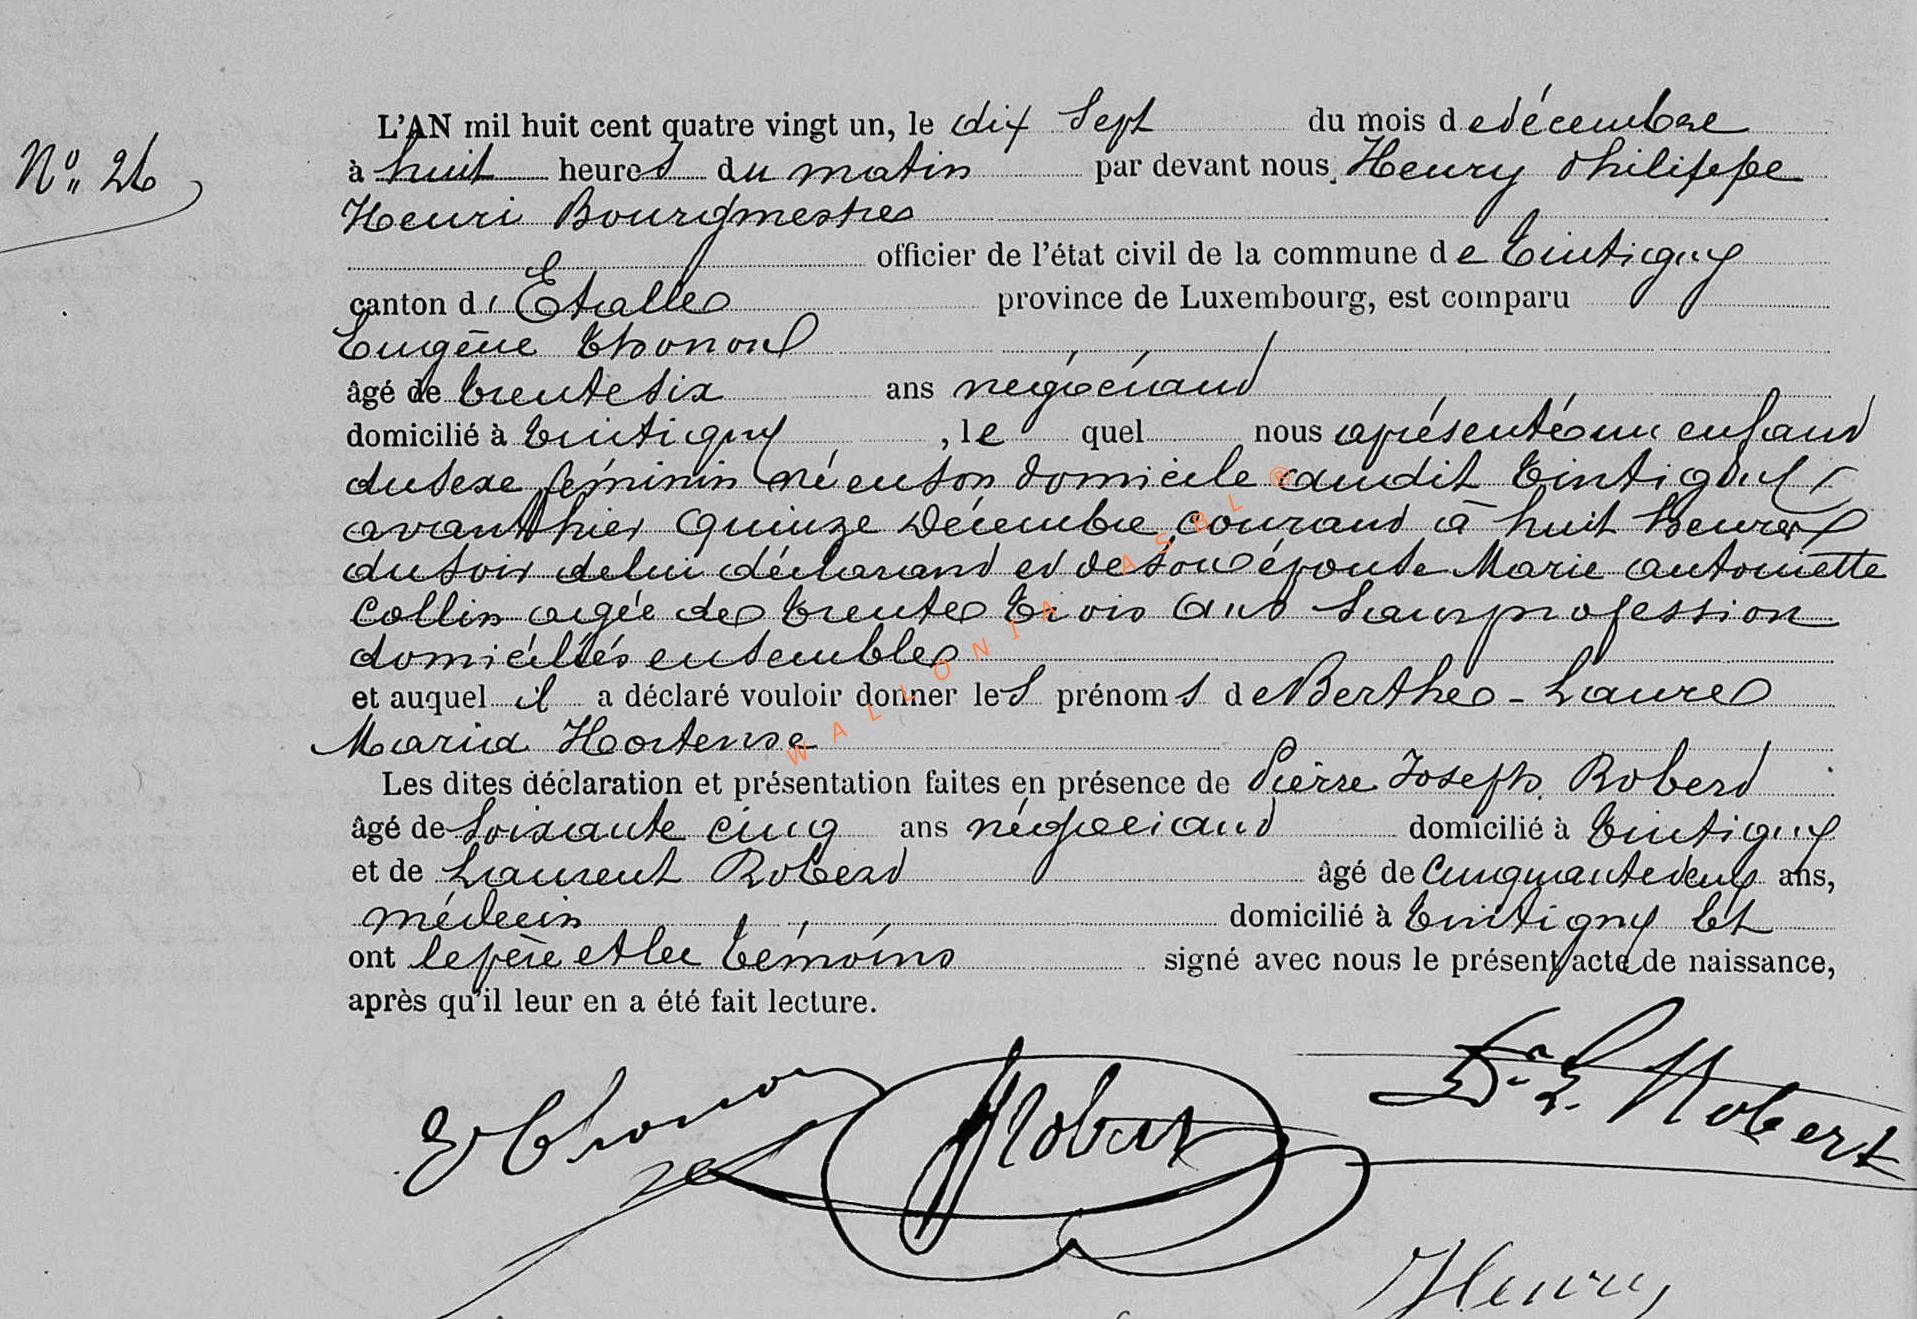 N° 26
L'AN mil huit cent quatre vingt un, le dix Sept du mois de décembre
à huit heures du matin par devant nous, Henry Philippe
Henri Bourgmestre
officier de l'état civil de la commune de Tintigny
canton d'Etalle province de Luxembourg, est comparu
Eugène Thonon
âgé de trente six ans négociand
domicilié à Tintigny, le quel nous a présenté un enfand
du sexe féminin né en son domicile audit Tintigny
avant hier quinze Décembre courand à huit heures
du soir de lui déclarand et de son épouse Marie antoinette
Collin agée de trente trois ans Sans profession
domiciliés ensemble
et auquel il a déclaré vouloir donner les prénoms de Berthe - Laure
Maria Hortense
Les dites déclaration et présentation faites en présence de Pierre Joseph Roberd
âgé de Soixante cinq ans négociand domicilié à Tintigny
et de Laurent Roberd âgé de Cinquante deux ans,
médecin domicilié à Tintigny Et
ont le père et les témoins signé avec nous le présent acte de naissance,
après qu'il leur en a été fait lecture.
E Thonon Robert Dr L. Robert
Henry
WALLONIA ASBL ®